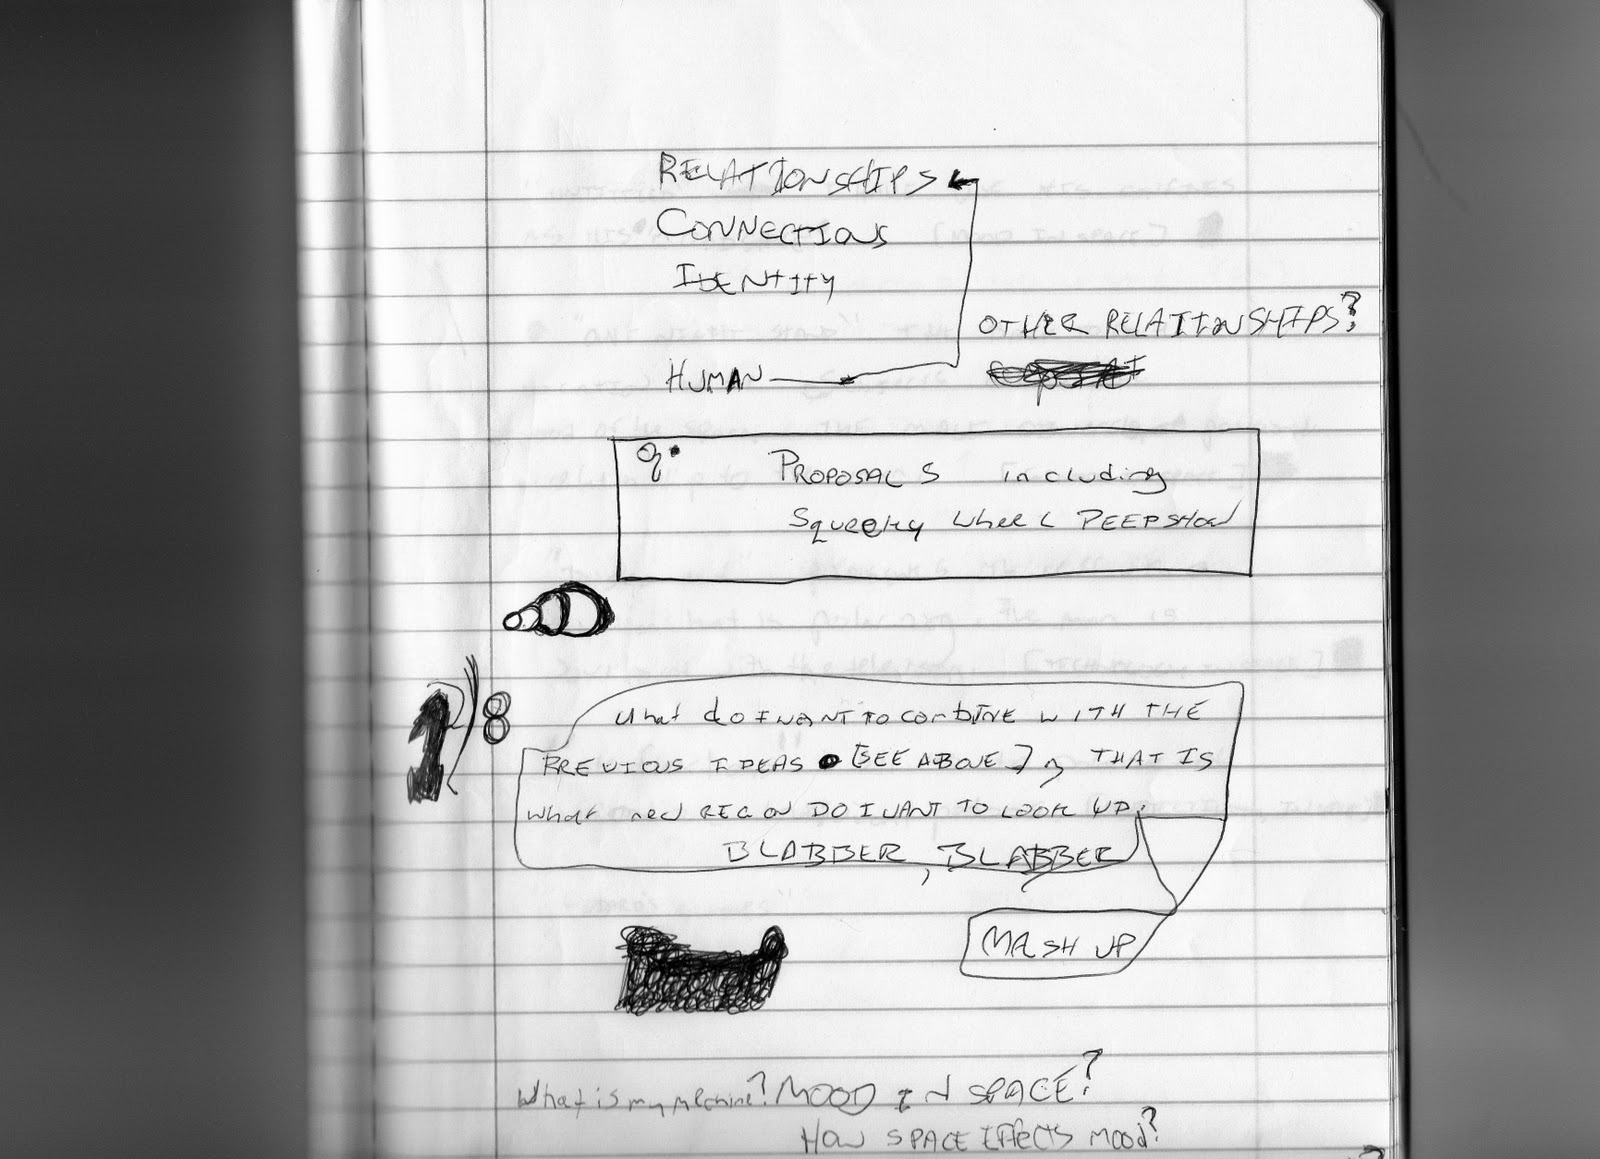 RELATIONSHIPS
CONNECTIONS
IDENTITY
OTHER RELATIONSHIPS?
HUMAN
PROPOSALS including
Squeeky wheel PEEPSHOW
8
what do I want to combine with THE
PREVIOUS IDEAS [SEE ABOVE] THAT IS
what new REGION DO I WANT TO LOOK UP.
BLABBER, BLABBER
MASH UP
What is my machine? MOOD IN SPACE?
HOW SPACE EFFECTS MOOD?